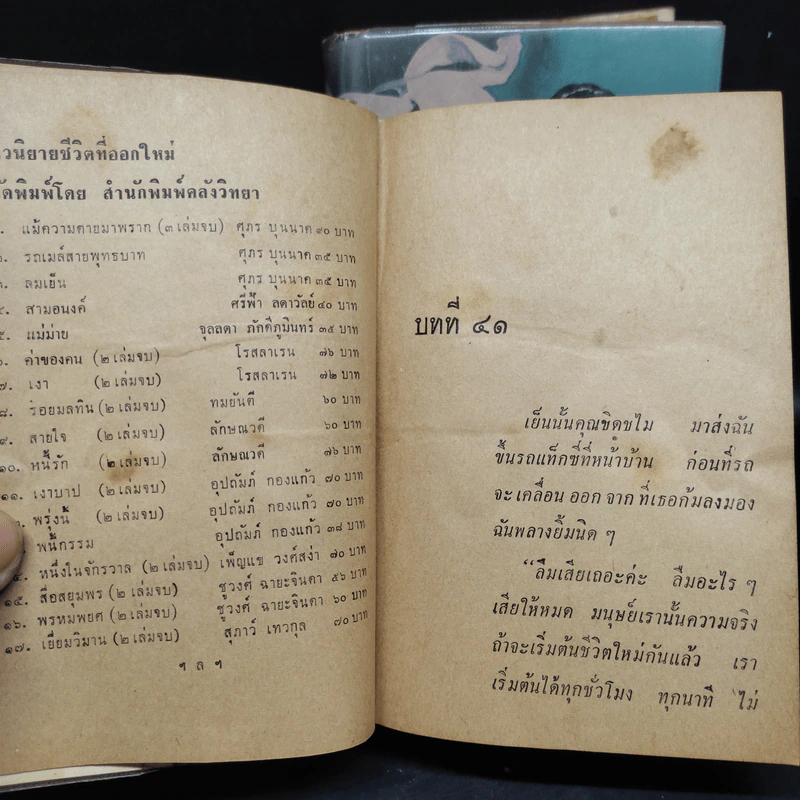 วนิยายชีวิตที่ออกใหม่
ดพิมพ์โดย สำนักพิมพ์คลังวิทยา
แม้ความตายมาพราก (๓ เล่มจบ) ศุภร บุนนาค ๙๐ บาท
๒. รถเมล์สายพุทธบาท ศุภร บุนนาค ๓๕ บาท
๓. ลมเย็น ศุภร บุนนาค ๓๕ บาท
๔. สามอนงค์ ศรีฟ้า ลดาวัลย์ ๔๐ บาท
๕. แม่ม่าย จุลลดา ภักดีภูมินทร์ ๓๕ บาท
๖. ค่าของคน (๒ เล่มจบ) โรสลาเรน ๗๖ บาท
๗. เงา (๒ เล่มจบ) โรสลาเรน ๗๒ บาท
๘. รอยมลทิน (๒ เล่มจบ) ทมยันตี ๖๐ บาท
๙. สายใจ (๒ เล่มจบ) ลักษณวดี ๖๐ บาท
๑๐. หนี้รัก (๒ เล่มจบ) ลักษณวดี ๗๖ บาท
๑๑. เงาบาป (๒ เล่มจบ) อุปถัมภ์ กองแก้ว ๗๐ บาท
พรุ่งนี้ (๒ เล่มจบ) อุปถัมภ์ กองแก้ว ๗๐ บาท
พินักรรม อุปถัมภ์ กองแก้ว ๓๘ บาท
๑๔. หนึ่งในจักรวาล (๒ เล่มจบ) เพ็ญแข วงศ์สง่า ๗๐ บาท
๑๕. สื่อสยุมพร (๒ เล่มจบ) ชูวงศ์ ฉายะจินดา ๕๖ บาท
๑๖. พรหมพยศ (๒ เล่มจบ) ชูวงศ์ ฉายะจินดา ๖๐ บาท
๑๗. เยี่ยมวิมาน (๒ เล่มจบ) สุภาว์ เทวกุล ๗๐ บาท
ฯ ล ฯ
บทที่ ๔๑
เย็นนั้นคุณขิดขไม มาส่งฉัน
ขึ้นรถแท็กซี่ที่หน้าบ้าน ก่อนที่รถ
จะเคลื่อนออกจากที่เธอก้มลงมอง
ฉันพลางยิ้มนิด ๆ
“ลืมเสียเถอะค่ะ ลืมอะไร ๆ
เสียให้หมด มนุษย์เรานั้นความจริง
ถ้าจะเริ่มต้นชีวิตใหม่กันแล้ว เรา
เริ่มต้นได้ทุกชั่วโมง ทุกนาที ไม่